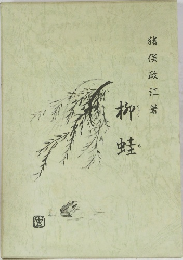 柳蛙
猪俣政江著